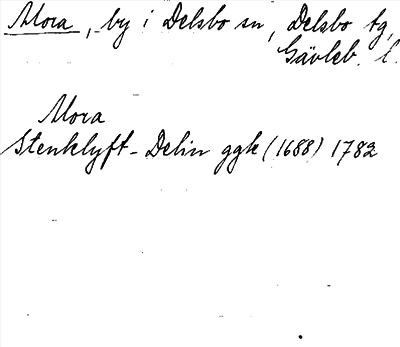 Mora, by i Delsbo sn, Delsbo tg,
Gävleb. l.
Mora
Stenklyft-Delin ggk (1688) 1782